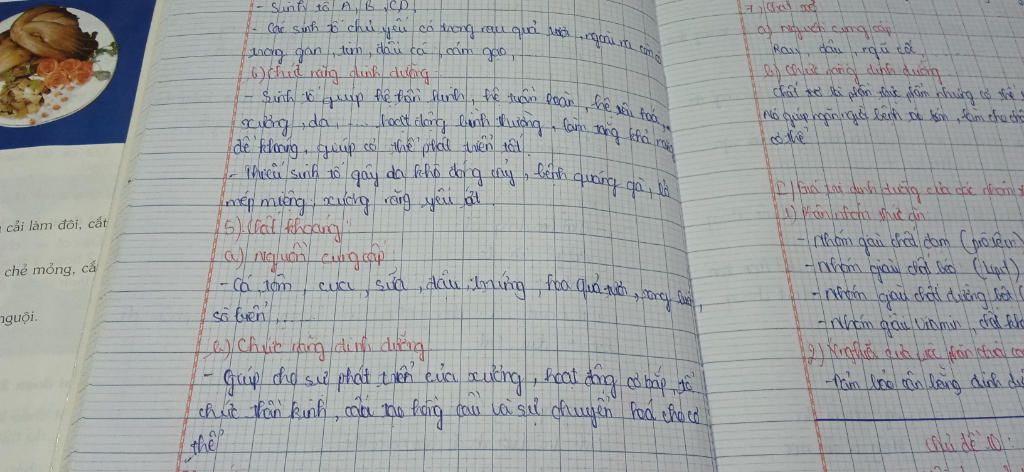 - Sinh tố A, B, C, D,
- Các sinh tố chủ yếu có trong rau quả tươi, ngoài ra còn có
trong gan, tim, dầu cá, cám gạo,
b) chức năng dinh dưỡng
- Sinh tố giúp hệ thần kinh, hệ tuần hoàn, hệ tiêu hoá,
xương, da, .... hoạt động bình thường, làm tăng khả năng
đề kháng, giúp cơ thể phát triển tốt.
- thiếu sinh tố gây da khô đóng vảy, bệnh quáng gà, lở
mép miệng, xương răng yếu ớt
5) Chất khoáng
a) nguồn cung cấp
- Cá, tôm, cua, sữa, đậu, trứng, hoa quả tươi, rong
biển, ...
b) Chức năng dinh dưỡng
- Giúp cho sự phát triển của xương, hoạt động cơ bắp, tổ
chức thần kinh, cấu tạo hồng cầu và sự chuyển hoá cho cơ
thể
cải làm đôi, cắt
chẻ mỏng, cắ
nguội.
7, chất xơ
a) nguồn cung cấp
Rau, đậu, ngũ cốc
b) chức năng dinh dưỡng
chất xơ là phần thực phẩm nhưng cơ thể
nó giúp ngăn ngừa bệnh táo bón, làm cho
có thể
II) Giá trị dinh dưỡng của các nhóm
1) Phân nhóm thức ăn
- nhóm giàu chất đạm (prôtêin)
- nhóm giàu chất béo (lipit)
- nhóm giàu chất đường bột (
- nhóm giàu vitamin, chất kh
2) Ý nghĩa của việc phân chia
- đảm bảo cân bằng dinh dư
Chủ đề 10: